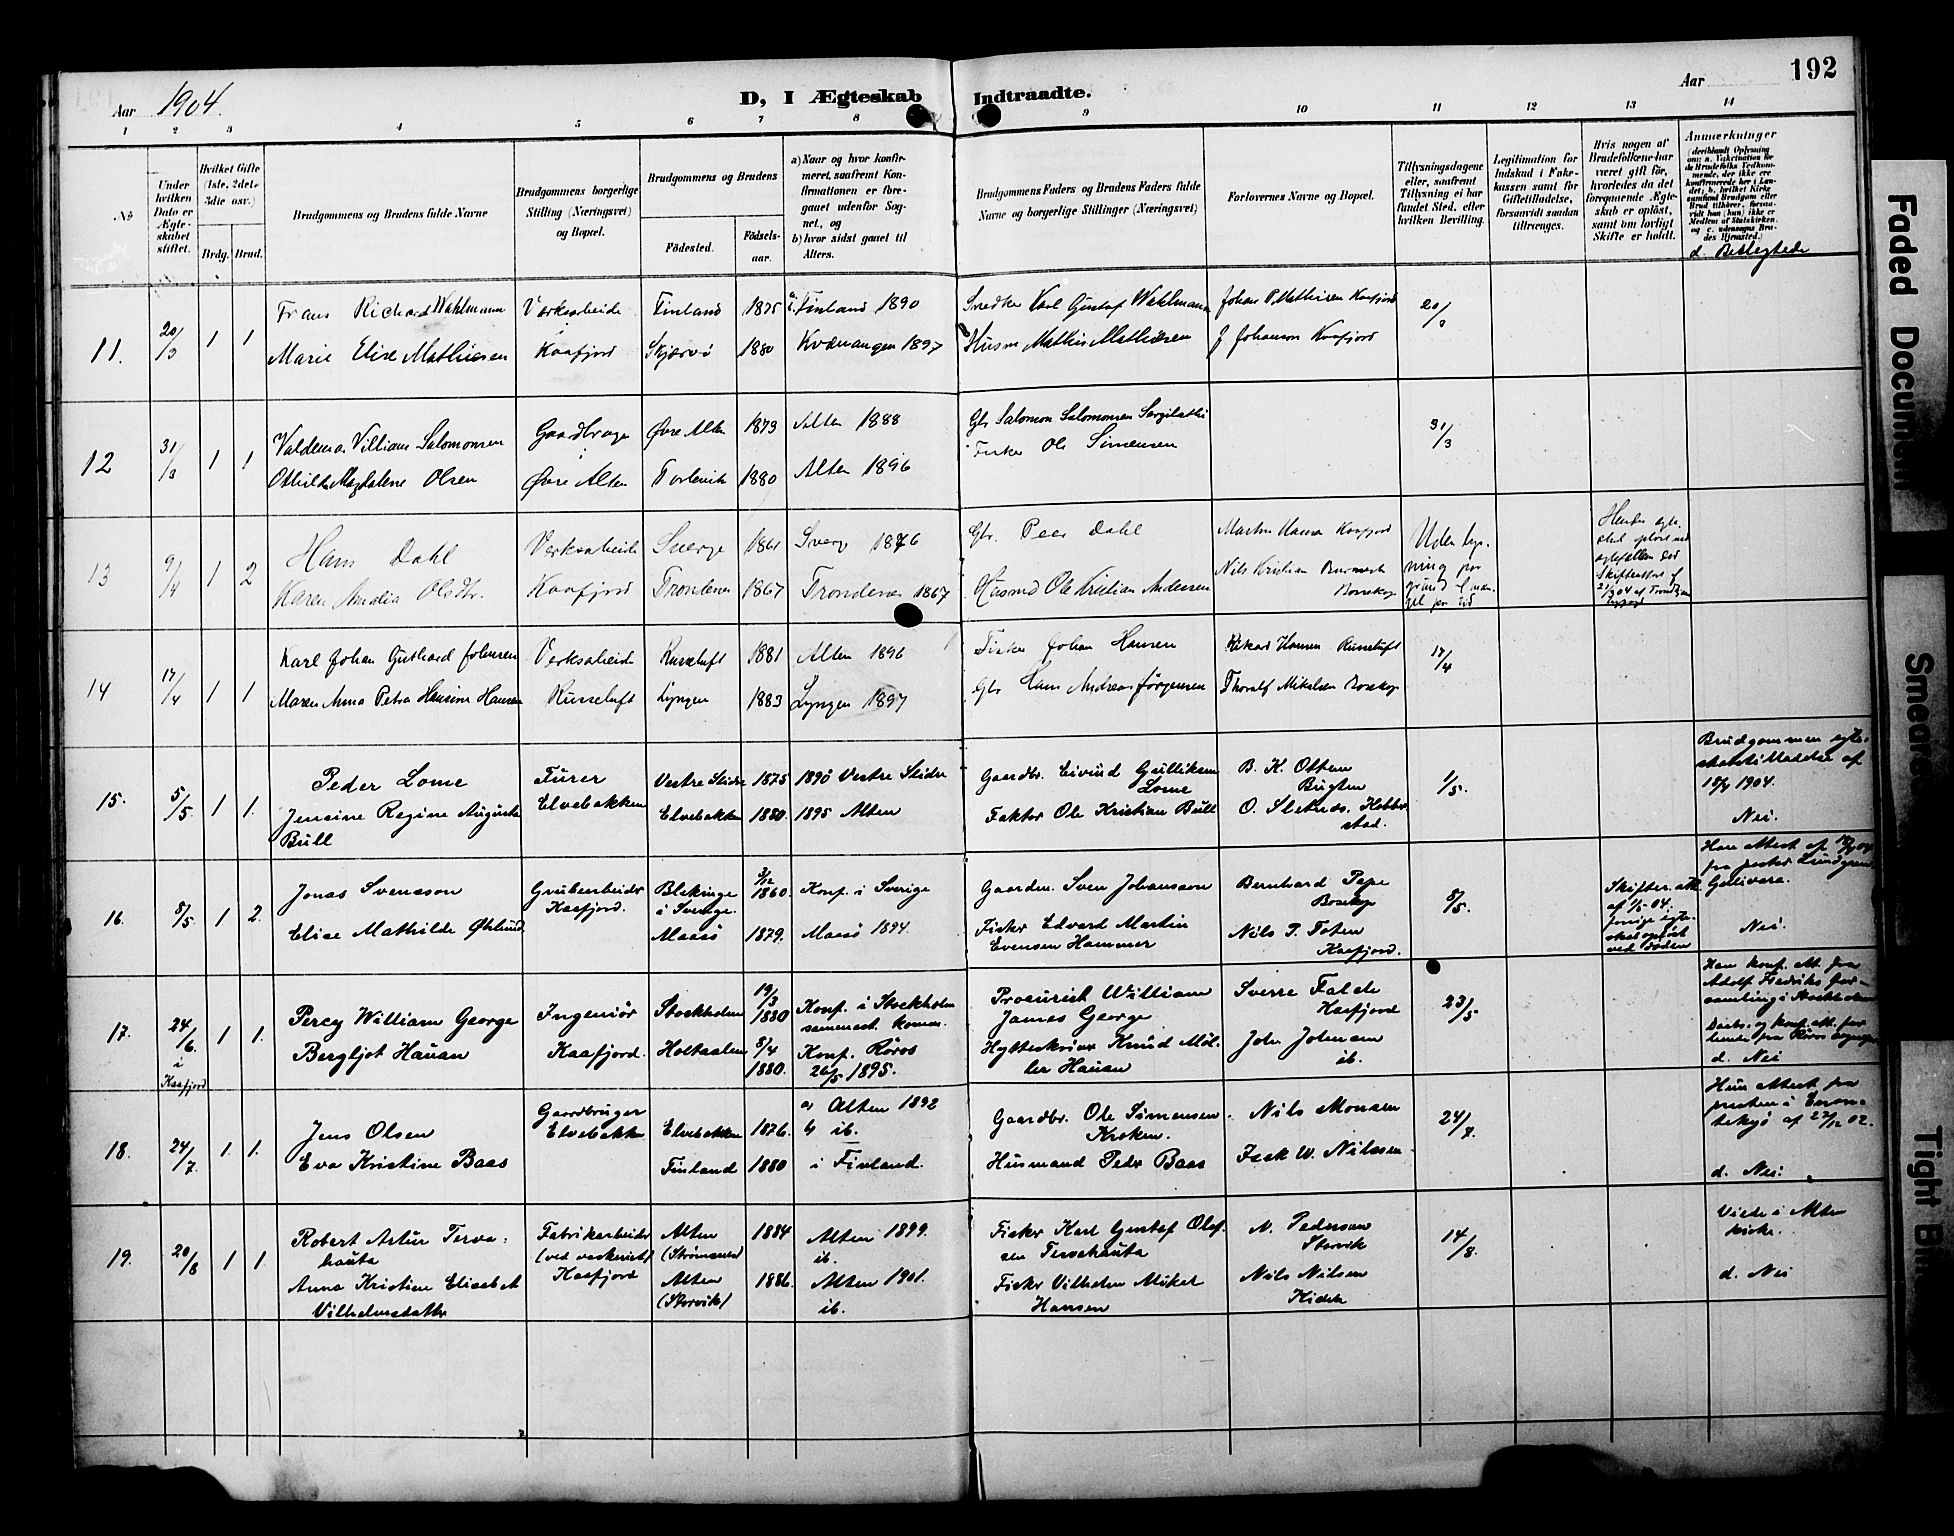 192
Aar 1904.
D, I Ægteskab Indtraadte.
Aar
1 2 3 4 5 6 7 8 9 10 11 12 13 14
No
Under hvilken Dato er Ægteskabet stiftet.
Hvilket Gifte (1ste, 2det, 3die osv.)
Brdg. Brud.
Brudgommens og Brudens fulde Navne
Brudgommens borgerlige Stilling (Næringsvei) og Bopæl.
Brudgommens og Brudens
Födested.
Födselsaar.
a) Naar og hvor konfirmeret, saafremt Konfirmationen er foregaaet udenfor Sognet, og
b) hvor sidst gaaet til Alters.
Brudgommens Faders og Brudens Faders fulde Navne og borgerlige Stillinger (Næringsvei)
Forlovernes Navne og Bopæl.
Tillysningsdagene eller, saafremt Tillysning ei har fundet Sted, efter hvilken Bevilling.
Legitimation for Indskud i Enkekassen samt for Giftetilladelse, forsaavidt saadan tiltrænges.
Hvis nogen af Brudefolkene har været gift för, hvorledes da det foregaaende Ægteskab er oplöst, samt om lovligt Skifte er holdt.
Anmerkninger
d. Beslegtede
11. 20/3 1 1
Frans Richard Wahlmann Verksarbeide Finland 1875 Finland 1890
Snedker Karl Gustaf Wahlmann Johan P. Mathisen Kaafjord 20/3
Marie Elise Mathiesen Kaafjord Skjærvö 1880 Kvænangen 1897
Husm Mathis Mathiesen J Johansen Kaafjord
12 31/3 1 1
Valdemar Villiam Salomonsen Gaardbruger Øvre Alten 1873 Alten 1888
Gbr Salomon Salomonsen 31/3
Othilde Magdalene Olsen Øvre Alten 1880 Alten 1896
Fisker Ole Simensen
13 9/4 1 2
Hans Dahl Verksarbeide Sverge 1861 Sverg 1876
Gbr. Peer Dahl Martin Hansen Kaafjord
Karen Amalia Olsdtr. Kaafjord Trondenes 1867 Trondenes 1867
Husmd Ole Kristian Andersen Nils Kristian Bossekop
Uden lysning paa grund af mangel paa tid
14 17/4 1 1
Karl Johan Guthard Johnsen Verksarbeide Russeluft 1881 Alten 1896
Fisker Johan Hansen Rikard Hansen Russeluft 17/4
Maren Anna Petra Hansine Hansen Russeluft Lyngen 1883 Lyngen 1897
Gbr Hans Andreas Jørgensen Thoralf Mikalsen Bossekop
15. 5/5. 1 1.
Peder Lome Furer Vestre Slidre 1875 1890 Vestre Slidre
Gaardbr. Eivind Gulliksen Lome B. K. Ottem Bugten 1/5.
Jensine Regine Augusta Bull Elvebakken Elvebakken 1880. 1895 Alten
Faktor Ole Kristian Bull
Brudgommen af 18/4 1904. Nei.
16. 8/5. 1 2.
Jonas Svensson Grubearbeider Kaafjord. Blekinge i Sverige. 3/12 1860. Konf. i Sverige
Gaardm. Sven Johansson Bernhard Pape Bossekop 8/5.
Elise Mathilde Øhlund Maasö 1879. Maasö 1894.
Fisker Edvard Martin Evensen Hammer Nils P. Foten Kaafjord.
Skifteratt. af 1/5 04. forrige egteskab oplöst ved döden
Gellivera. Nei.
17. 24/6. i Kaafjord 1 1.
Percy William George Ingeniör Stockholm 19/3 1880 Konf. i Stockholm
Procurist William James George Sverre Falde Kaafjord 23/5
Bergljot Hauan Kaafjord. Holtaalen 8/4 1880. Konf. Röros 26/5 1895.
Hytteskriver Knud Möller Hauan John Johnsen ib.
Han konf. att. fra Adolf Fredriks forsamling i Stockholm
d. Nei
18. 24/7. 1 1.
Jens Olsen Gaardbruger Elvebakken Elvebakken 1876. a) Alten 1892 b) ib.
Gaardbr. Ole Simensen Kroken. Nils Monsen 24/7.
Eva Kristine Baas Finland 1880 i Finland.
Husmand Peder Baas Isak W. Nilssen
Hun attest fra presten i Enontekiø af 27/12 02.
d. Nei.
19. 20/8 1 1.
Robert Artur Tervahauta Fabrikarbeider (ved vaskeriet) Kaafjord Alten (Strömsnes) 1884 Alten 1899. ib.
Fisker Karl Gustaf Olsen Tervahauta N. Pedersen Storvik 14/8.
Anna Kristine Elisabet Vilhelmsdatter Alten (Storvik) 1886. Alten 1901. ib.
Fisker Vilhelm Mikal Hansen Nils Nilsen
Viede i Alten kirke.
d. Nei
Faded Document
Smeared
Tight Bi